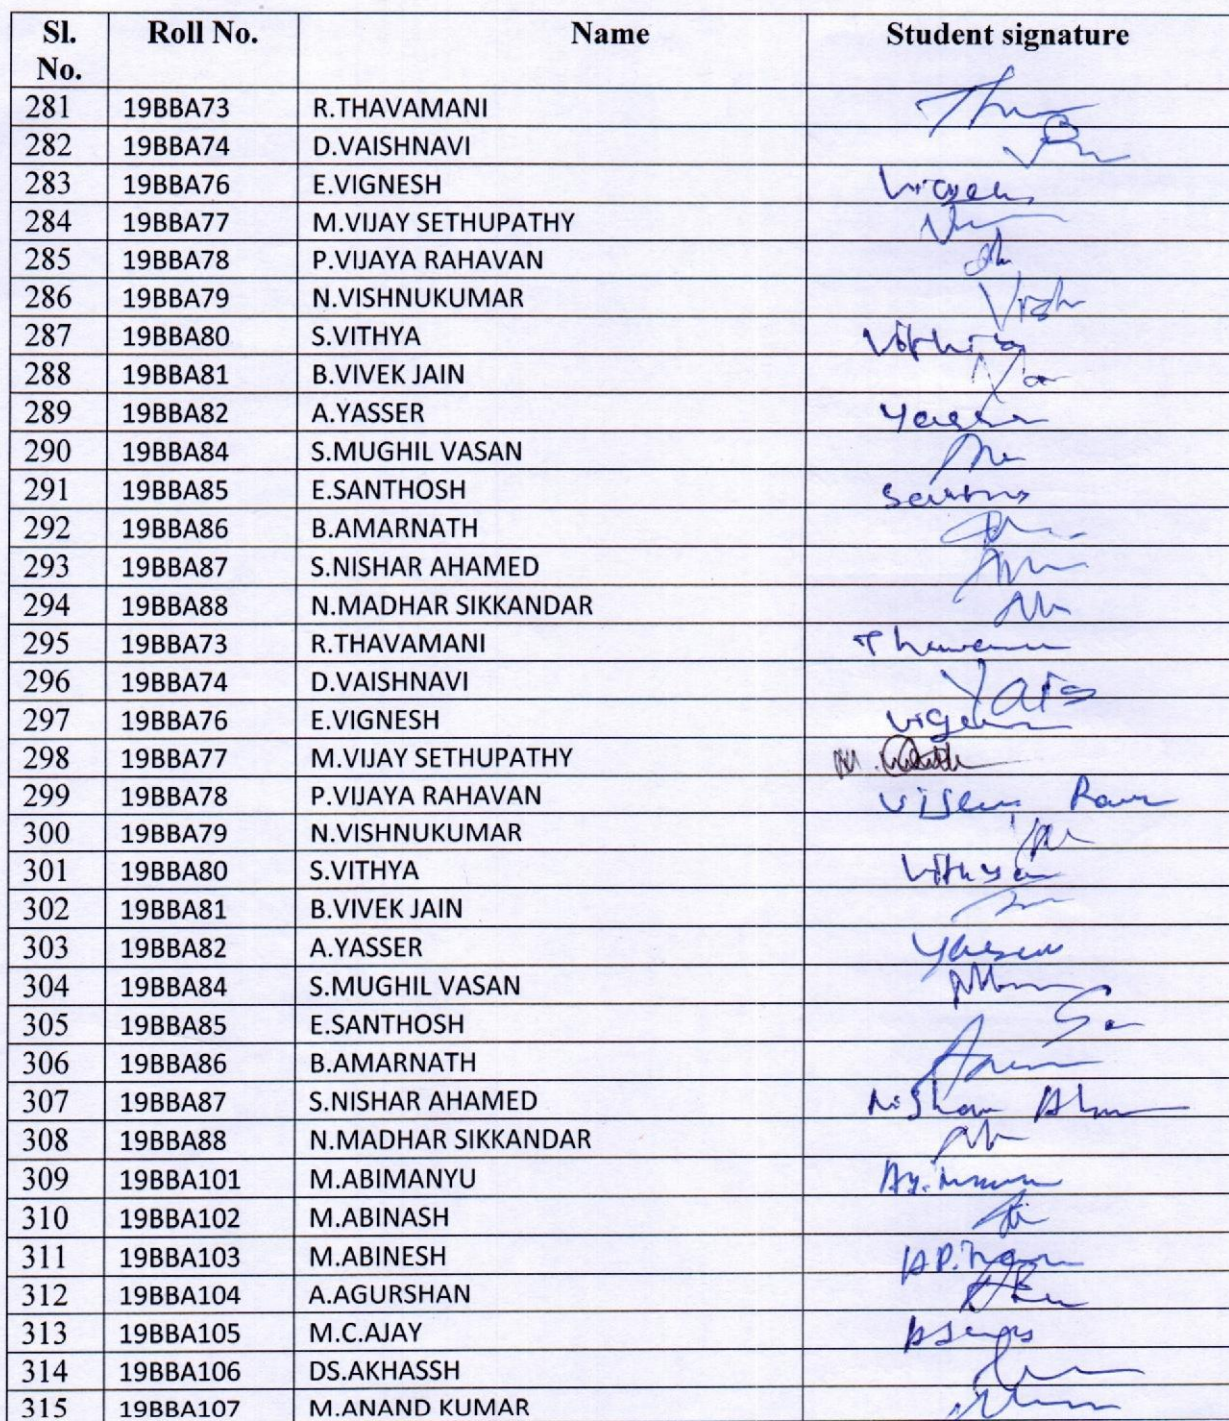 Sl. No. Roll No. Name Student signature
281 19BBA73 R.THAVAMANI
282 19BBA74 D.VAISHNAVI
283 19BBA76 E.VIGNESH
284 19BBA77 M.VIJAY SETHUPATHY
285 19BBA78 P.VIJAYA RAHAVAN
286 19BBA79 N.VISHNUKUMAR
287 19BBA80 S.VITHYA
288 19BBA81 B.VIVEK JAIN
289 19BBA82 A.YASSER
290 19BBA84 S.MUGHIL VASAN
291 19BBA85 E.SANTHOSH
292 19BBA86 B.AMARNATH
293 19BBA87 S.NISHAR AHAMED
294 19BBA88 N.MADHAR SIKKANDAR
295 19BBA73 R.THAVAMANI
296 19BBA74 D.VAISHNAVI
297 19BBA76 E.VIGNESH
298 19BBA77 M.VIJAY SETHUPATHY
299 19BBA78 P.VIJAYA RAHAVAN
300 19BBA79 N.VISHNUKUMAR
301 19BBA80 S.VITHYA
302 19BBA81 B.VIVEK JAIN
303 19BBA82 A.YASSER
304 19BBA84 S.MUGHIL VASAN
305 19BBA85 E.SANTHOSH
306 19BBA86 B.AMARNATH
307 19BBA87 S.NISHAR AHAMED
308 19BBA88 N.MADHAR SIKKANDAR
309 19BBA101 M.ABIMANYU
310 19BBA102 M.ABINASH
311 19BBA103 M.ABINESH
312 19BBA104 A.AGURSHAN
313 19BBA105 M.C.AJAY
314 19BBA106 DS.AKHASSH
315 19BBA107 M.ANAND KUMAR